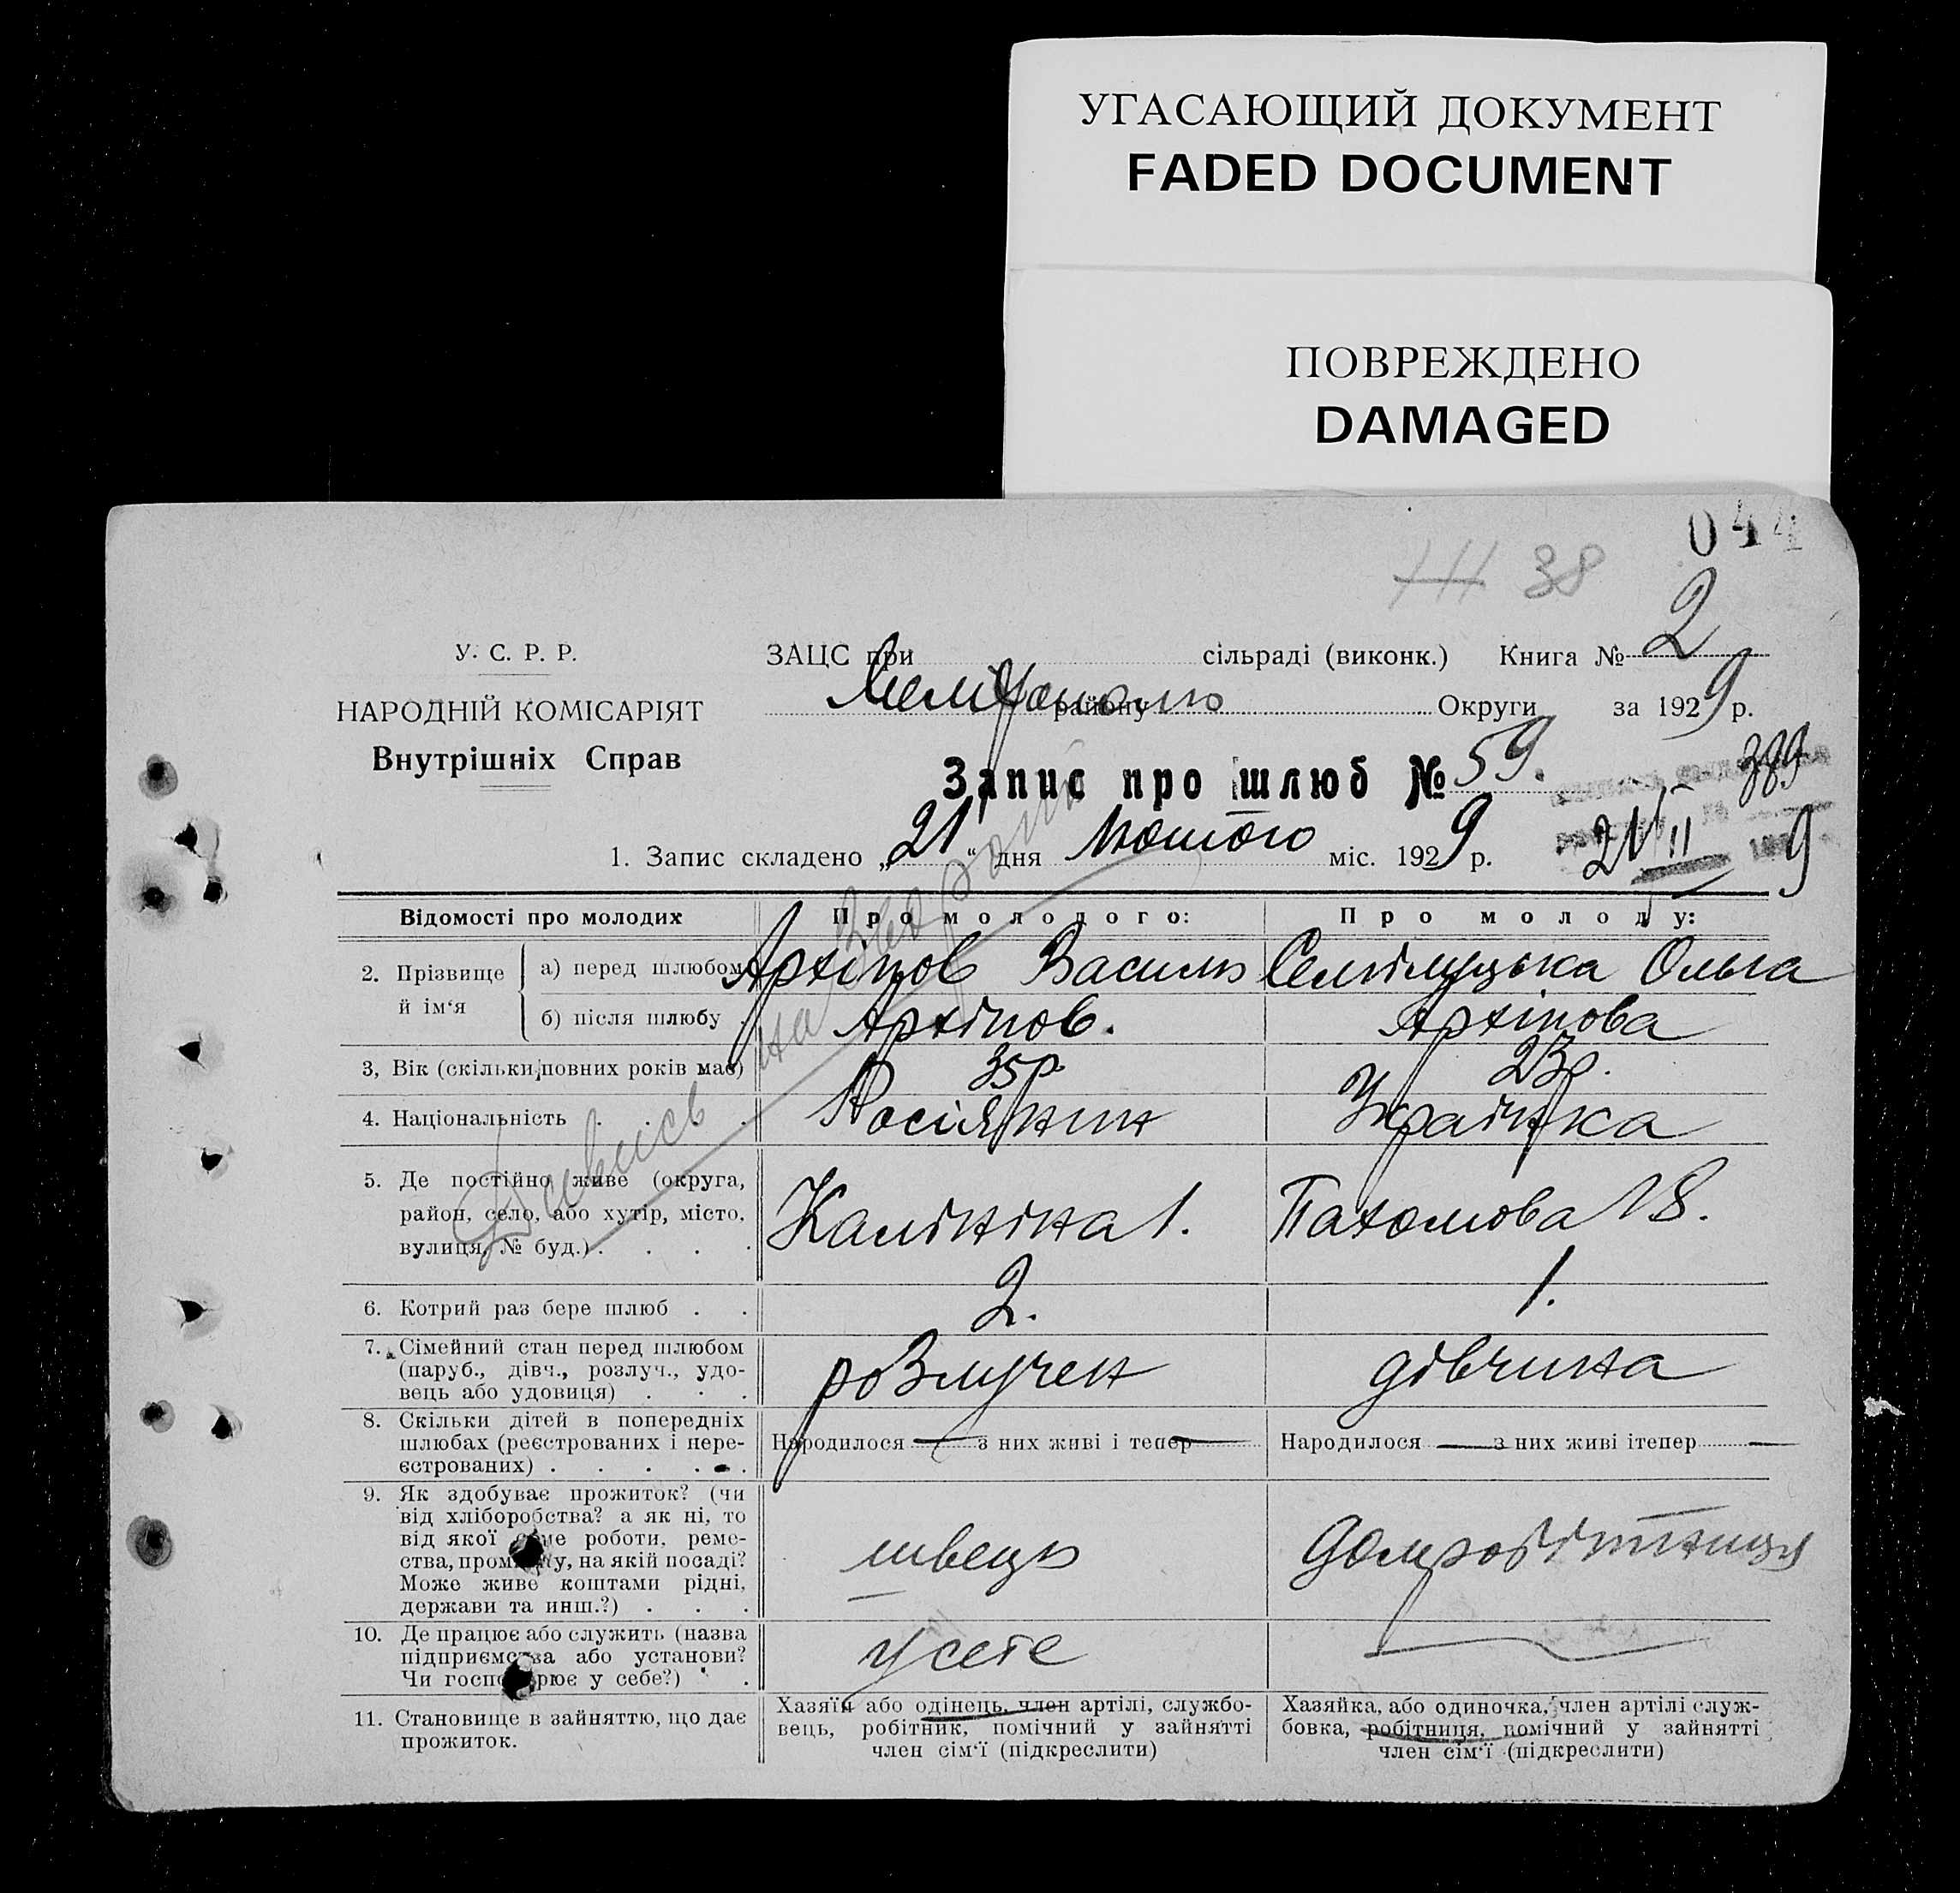 УГАСАЮЩИЙ ДОКУМЕНТ
FADED DOCUMENT
ПОВРЕЖДЕНО
DAMAGED
044
38
У. С. Р. Р.
НАРОДНІЙ КОМІСАРІЯТ
Внутрішніх Справ
ЗАЦС при сільраді (виконк.) Книга № 2
району Округи за 1929 р.
Запис про шлюб № 59.
389
1. Запис складено „21“ дня Лютого міс. 1929 р.
21/II 9
Відомості про молодих
Про молодого:
Про молоду:
2. Прізвище й ім‘я
а) перед шлюбом
Архіпов Василь
Ольга
б) після шлюбу
Архіпов.
Архіпова
3, Вік (скільки повних років має)
35 р.
23 р.
4. Національність . . .
Росіянин
Українка
5. Де постійно живе (округа,
район, село, або хутір, місто,
вулиця, № буд.) . . . .
Калініна 1.
Пахомова 18.
6. Котрий раз бере шлюб . .
2.
1.
7. Сімейний стан перед шлюбом
(паруб., дівч., розлуч., удо-
вець або удовиця) . . .
розлучен
дівчина
8. Скільки дітей в попередніх
шлюбах (реєстрованих і нере-
єстрованих) . . . . .
Народилося — з них живі і тепер —
Народилося — з них живі ітепер —
9. Як здобуває прожиток? (чи
від хліборобства? а як ні, то
від якої роботи, реме-
ства, на якій посаді?
Може живе коштами рідні,
держави та инш.?) . . .
швець
домробітниця
10. Де працює або служить (назва
підприємства або установи?
Чи господарює у себе?) .
у себе
—
11. Становище в зайняттю, що дає
прожиток.
Хазяїн або одінець, член артілі, службо-
вець, робітник, помічний у зайнятті
член сім‘ї (підкреслити)
Хазяйка, або одиночка, член артілі служ-
бовка, робітниця, помічний у зайнятті
член сім‘ї (підкреслити)